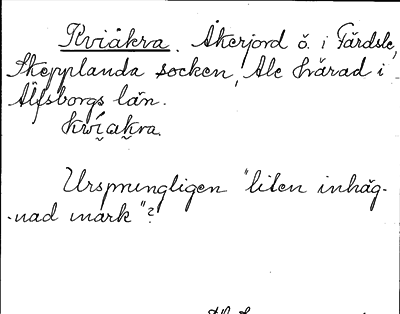 Kviåkra. Åkerjord ö. i Gärdsle,
Skepplanda socken, Ale härad i
Älfsborgs län.
kwi̯akra.
Ursprungligen "liten inhäg-
-nad mark"?